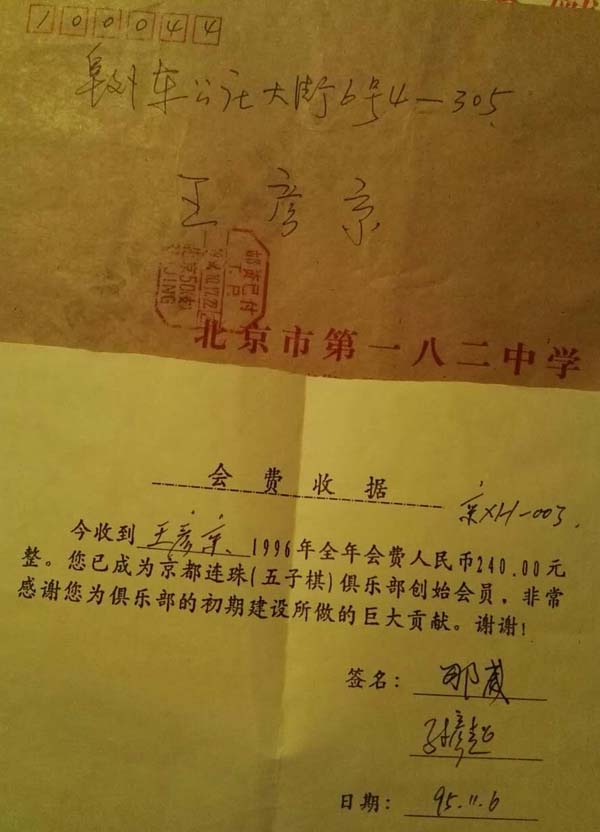 100044
阜外车公庄大街6号4-305
王彦京
邮资已付
T.P.
JING
北京市第一八二中学
会费收据
京XH-003
今收到 王彦京 1996年全年会费人民币240.00元
整。您已成为京都连珠(五子棋)俱乐部创始会员,非常
感谢您为俱乐部的初期建设所做的巨大贡献。谢谢!
签名: 那威
日期: 95.11.6